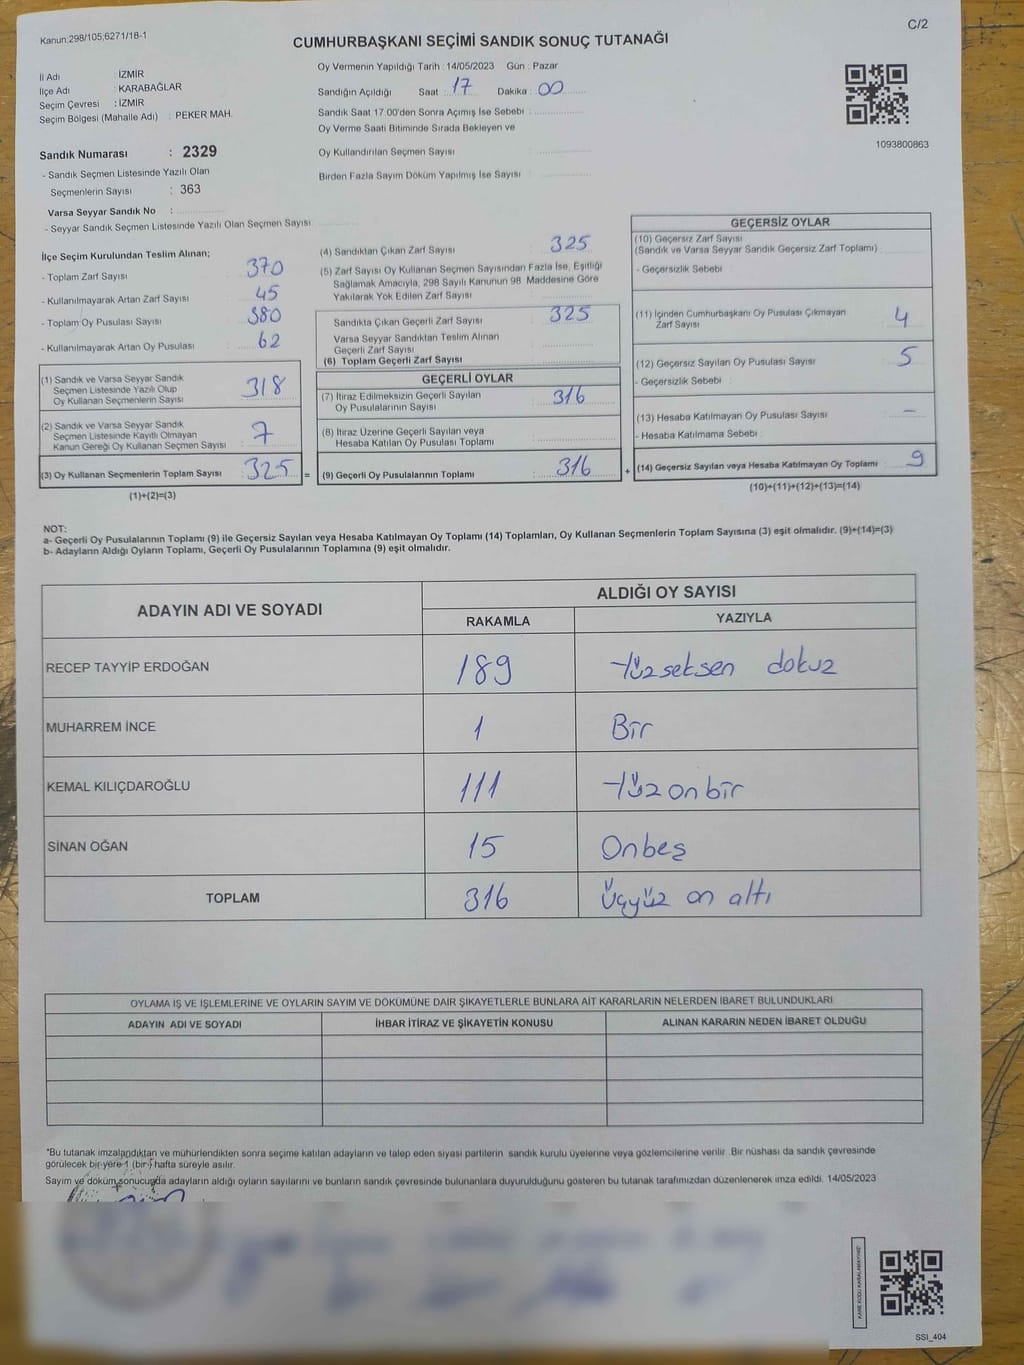 Kanun:298/105;6271/18-1
C/2
CUMHURBAŞKANI SEÇİMİ SANDIK SONUÇ TUTANAĞI
İl Adı : İZMİR
İlçe Adı : KARABAĞLAR
Seçim Çevresi : İZMİR
Seçim Bölgesi (Mahalle Adı) : PEKER MAH.
Sandık Numarası : 2329
- Sandık Seçmen Listesinde Yazılı Olan
Seçmenlerin Sayısı : 363
Varsa Seyyar Sandık No :
- Seyyar Sandık Seçmen Listesinde Yazılı Olan Seçmen Sayısı
Oy Vermenin Yapıldığı Tarih : 14/05/2023 Gün : Pazar
Sandığın Açıldığı Saat : 17 Dakika : 00
Sandık Saat 17.00'den Sonra Açımış İse Sebebi :
Oy Verme Saati Bitiminde Sırada Bekleyen ve
Oy Kullandırılan Seçmen Sayısı :
Birden Fazla Sayım Döküm Yapılmış İse Sayısı :
1093800863
İlçe Seçim Kurulundan Teslim Alınan;
- Toplam Zarf Sayısı : 370
- Kullanılmayarak Artan Zarf Sayısı : 45
- Toplam Oy Pusulası Sayısı : 380
- Kullanılmayarak Artan Oy Pusulası : 62
(1) Sandık ve Varsa Seyyar Sandık
Seçmen Listesinde Yazılı Olup
Oy Kullanan Seçmenlerin Sayısı : 318
(2) Sandık ve Varsa Seyyar Sandık
Seçmen Listesinde Kayıtlı Olmayan
Kanun Gereği Oy Kullanan Seçmen Sayısı : 7
(3) Oy Kullanan Seçmenlerin Toplam Sayısı : 325 =
(1)+(2)=(3)
(4) Sandıktan Çıkan Zarf Sayısı : 325
(5) Zarf Sayısı Oy Kullanan Seçmen Sayısından Fazla İse, Eşitliği
Sağlamak Amacıyla, 298 Sayılı Kanunun 98 Maddesine Göre
Yakılarak Yok Edilen Zarf Sayısı :
Sandıkta Çıkan Geçerli Zarf Sayısı : 325
Varsa Seyyar Sandıktan Teslim Alınan
Geçerli Zarf Sayısı :
(6) Toplam Geçerli Zarf Sayısı :
GEÇERLİ OYLAR
(7) İtiraz Edilmeksizin Geçerli Sayılan
Oy Pusulalarının Sayısı : 316
(8) İtiraz Üzerine Geçerli Sayılan veya
Hesaba Katılan Oy Pusulası Toplamı :
(9) Geçerli Oy Pusulalarının Toplamı : 316 +
GEÇERSİZ OYLAR
(10) Geçersiz Zarf Sayısı
(Sandık ve Varsa Seyyar Sandık Geçersiz Zarf Toplamı) :
- Geçersizlik Sebebi :
(11) İçinden Cumhurbaşkanı Oy Pusulası Çıkmayan
Zarf Sayısı : 4
(12) Geçersiz Sayılan Oy Pusulası Sayısı : 5
- Geçersizlik Sebebi :
(13) Hesaba Katılmayan Oy Pusulası Sayısı : -
- Hesaba Katılmama Sebebi :
(14) Geçersiz Sayılan veya Hesaba Katılmayan Oy Toplamı : 9
(10)+(11)+(12)+(13)=(14)
NOT:
a- Geçerli Oy Pusulalarının Toplamı (9) ile Geçersiz Sayılan veya Hesaba Katılmayan Oy Toplamı (14) Toplamları, Oy Kullanan Seçmenlerin Toplam Sayısına (3) eşit olmalıdır. (9)+(14)=(3)
b- Adayların Aldığı Oyların Toplamı, Geçerli Oy Pusulalarının Toplamına (9) eşit olmalıdır.
ADAYIN ADI VE SOYADI ALDIĞI OY SAYISI
RAKAMLA YAZIYLA
RECEP TAYYİP ERDOĞAN 189 Yüzseksen dokuz
MUHARREM İNCE 1 Bir
KEMAL KILIÇDAROĞLU 111 Yüzonbir
SİNAN OĞAN 15 Onbeş
TOPLAM 316 Üçyüz on altı
OYLAMA İŞ VE İŞLEMLERİNE VE OYLARIN SAYIM VE DÖKÜMÜNE DAİR ŞİKAYETLERLE BUNLARA AİT KARARLARIN NELERDEN İBARET BULUNDUKLARI
ADAYIN ADI VE SOYADI İHBAR İTİRAZ VE ŞİKAYETİN KONUSU ALINAN KARARIN NEDEN İBARET OLDUĞU
*Bu tutanak imzalandıktan ve mühürlendikten sonra seçime katılan adayların ve talep eden siyasi partilerin sandık kurulu üyelerine veya gözlemcilerine verilir .Bir nüshası da sandık çevresinde
görülecek bir yere 1 (bir ) hafta süreyle asılır.
Sayım ve döküm sonucunda adayların aldığı oyların sayılarını ve bunların sandık çevresinde bulunanlara duyurulduğunu gösteren bu tutanak tarafımızdan düzenlenerek imza edildi. 14/05/2023
SSI_404